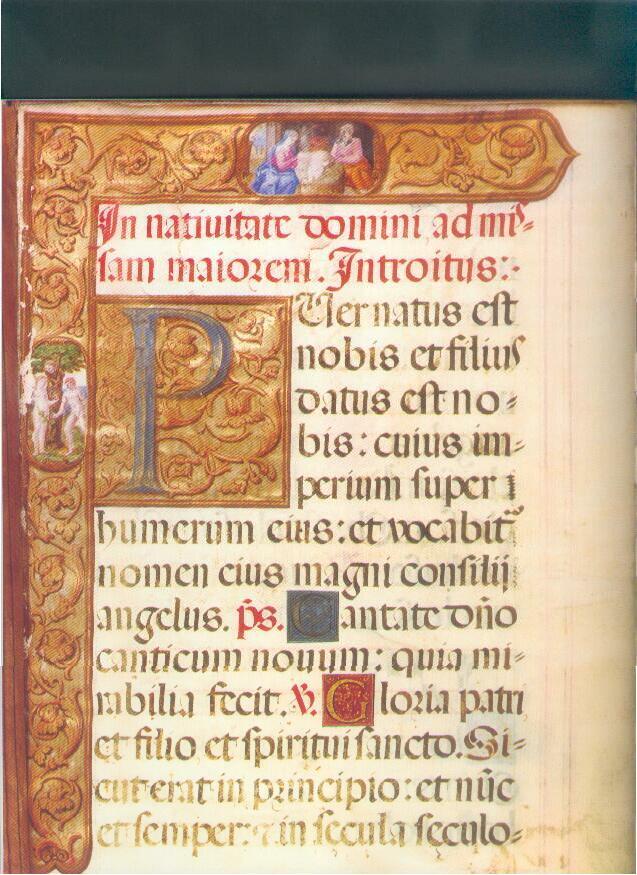 In natiuitate domini ad mis=
sam maiorem. Introitus:
PUer natus est
nobis et filius
datus est no=
bis: cuius im=
perium super
humerum eius: et vocabit̃
nomen eius magni consilij
angelus. p̃s. Cantate dño
canticum nouum: quia mi=
rabilia fecit. V. Gloria patri
et filio et spiritui sancto. Si=
cut erat in principio: et nũc
et semper: et in secula seculo=